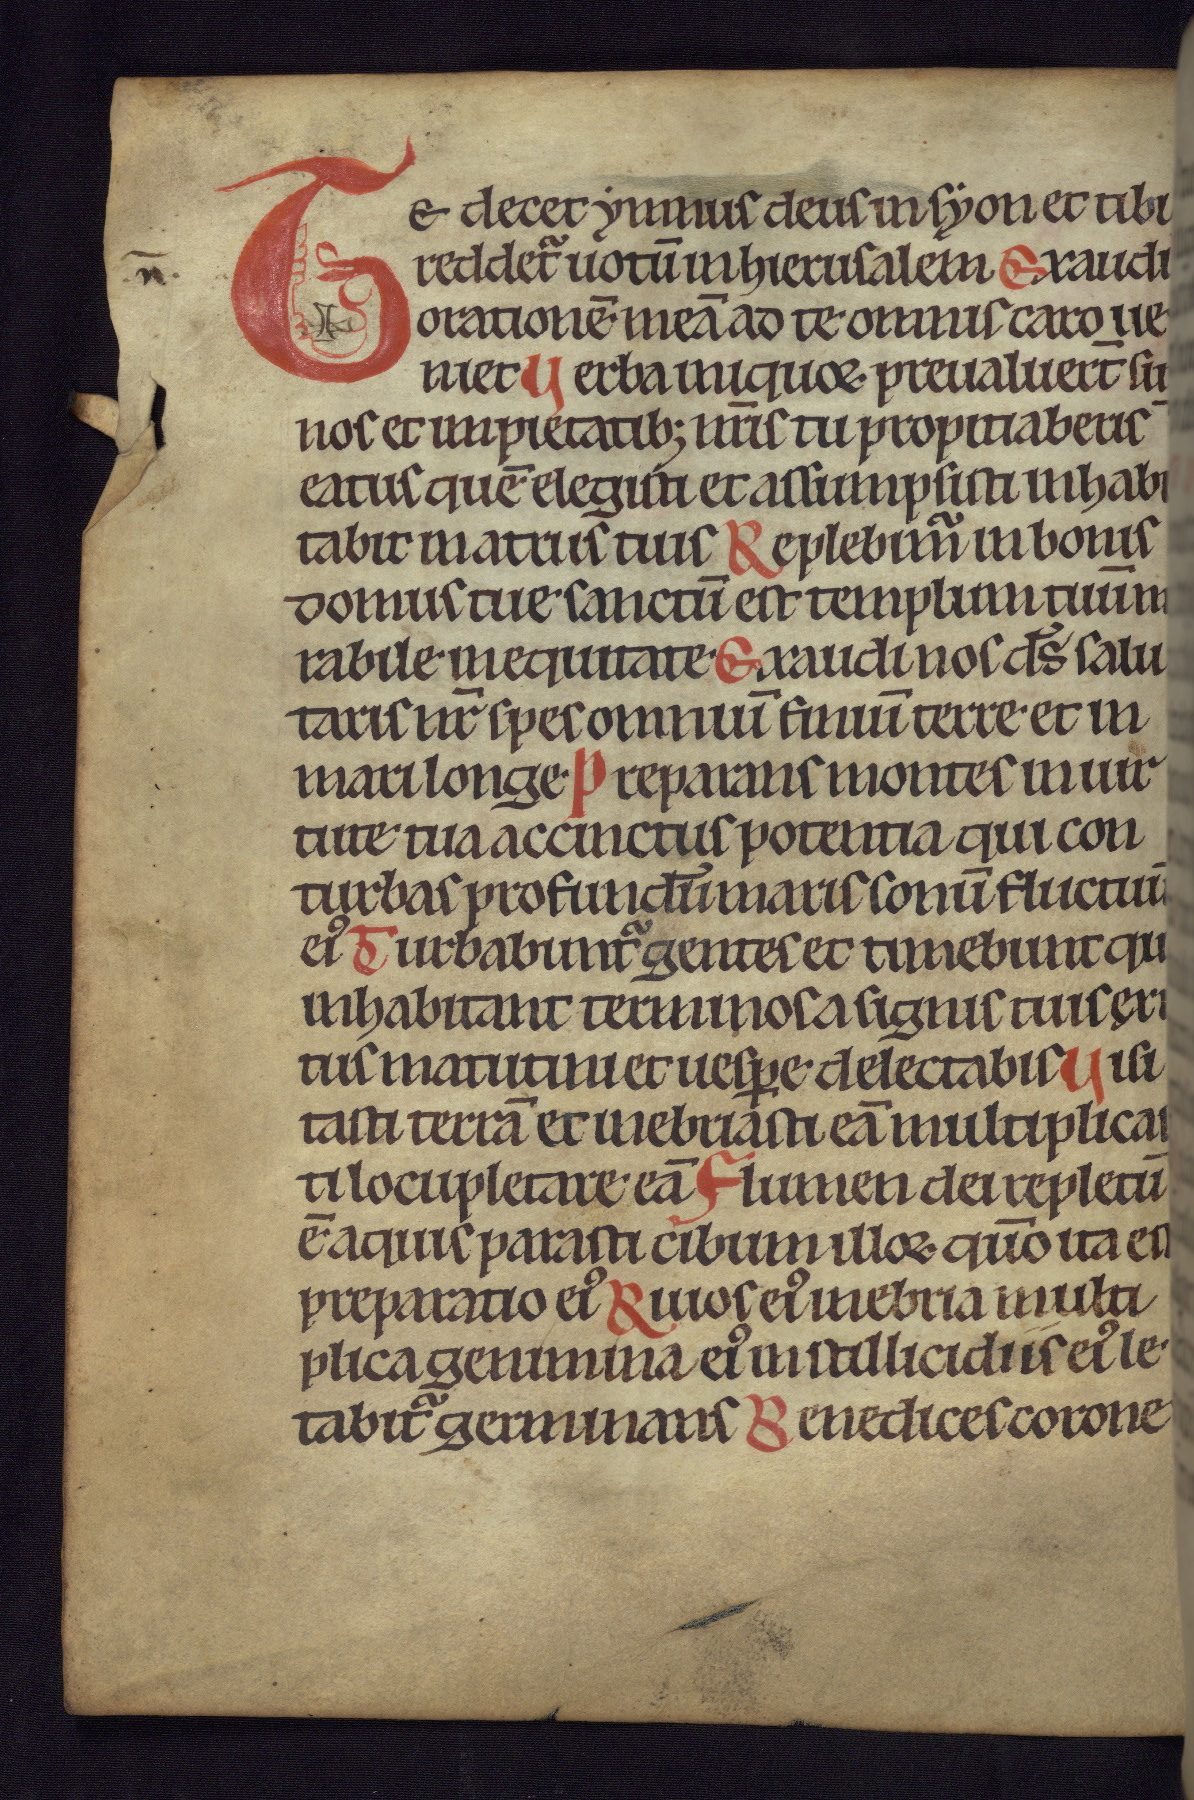 Te decet ymnus deus in syon et tibi
n̄.
reddet᷑ uotū in hierusalem Exaudi
orationē meā ad te omnis caro ue
niet Verba iniquoꝝ preualuert̄ su
nos et impietatib; nr̄is tu propitiaberis
eatus quē elegisti et assumpsisti inhabi
tabit in atriis tuis Replebim᷑ in bonis
domus tue sanctū est templum tuū m
rabile in equitate Exaudi nos ds̄ salu
taris nr̄ spes omniū finiū terre et in
mari longe Preparans montes in uir
tute tua accinctus potentia qui con
turbas profundū maris sonū fluctuū
eiꝰ Turbabunt᷑ gentes et timebunt qui
inhabitant terminos a signis tuis exi
tus matutini et uesꝑe delectabis Visi
tasti terrā et inebriasti eā multiplicas
ti locupletare eā Flumen dei repletū
ē aquis parasti cibum illoꝝ qūo ita est
preparatio eiꝰ Riuos eiꝰ inebria multi
plica genimina eiꝰ in stillicidiis eiꝰ le
tabit᷑ germinans Benedices corone